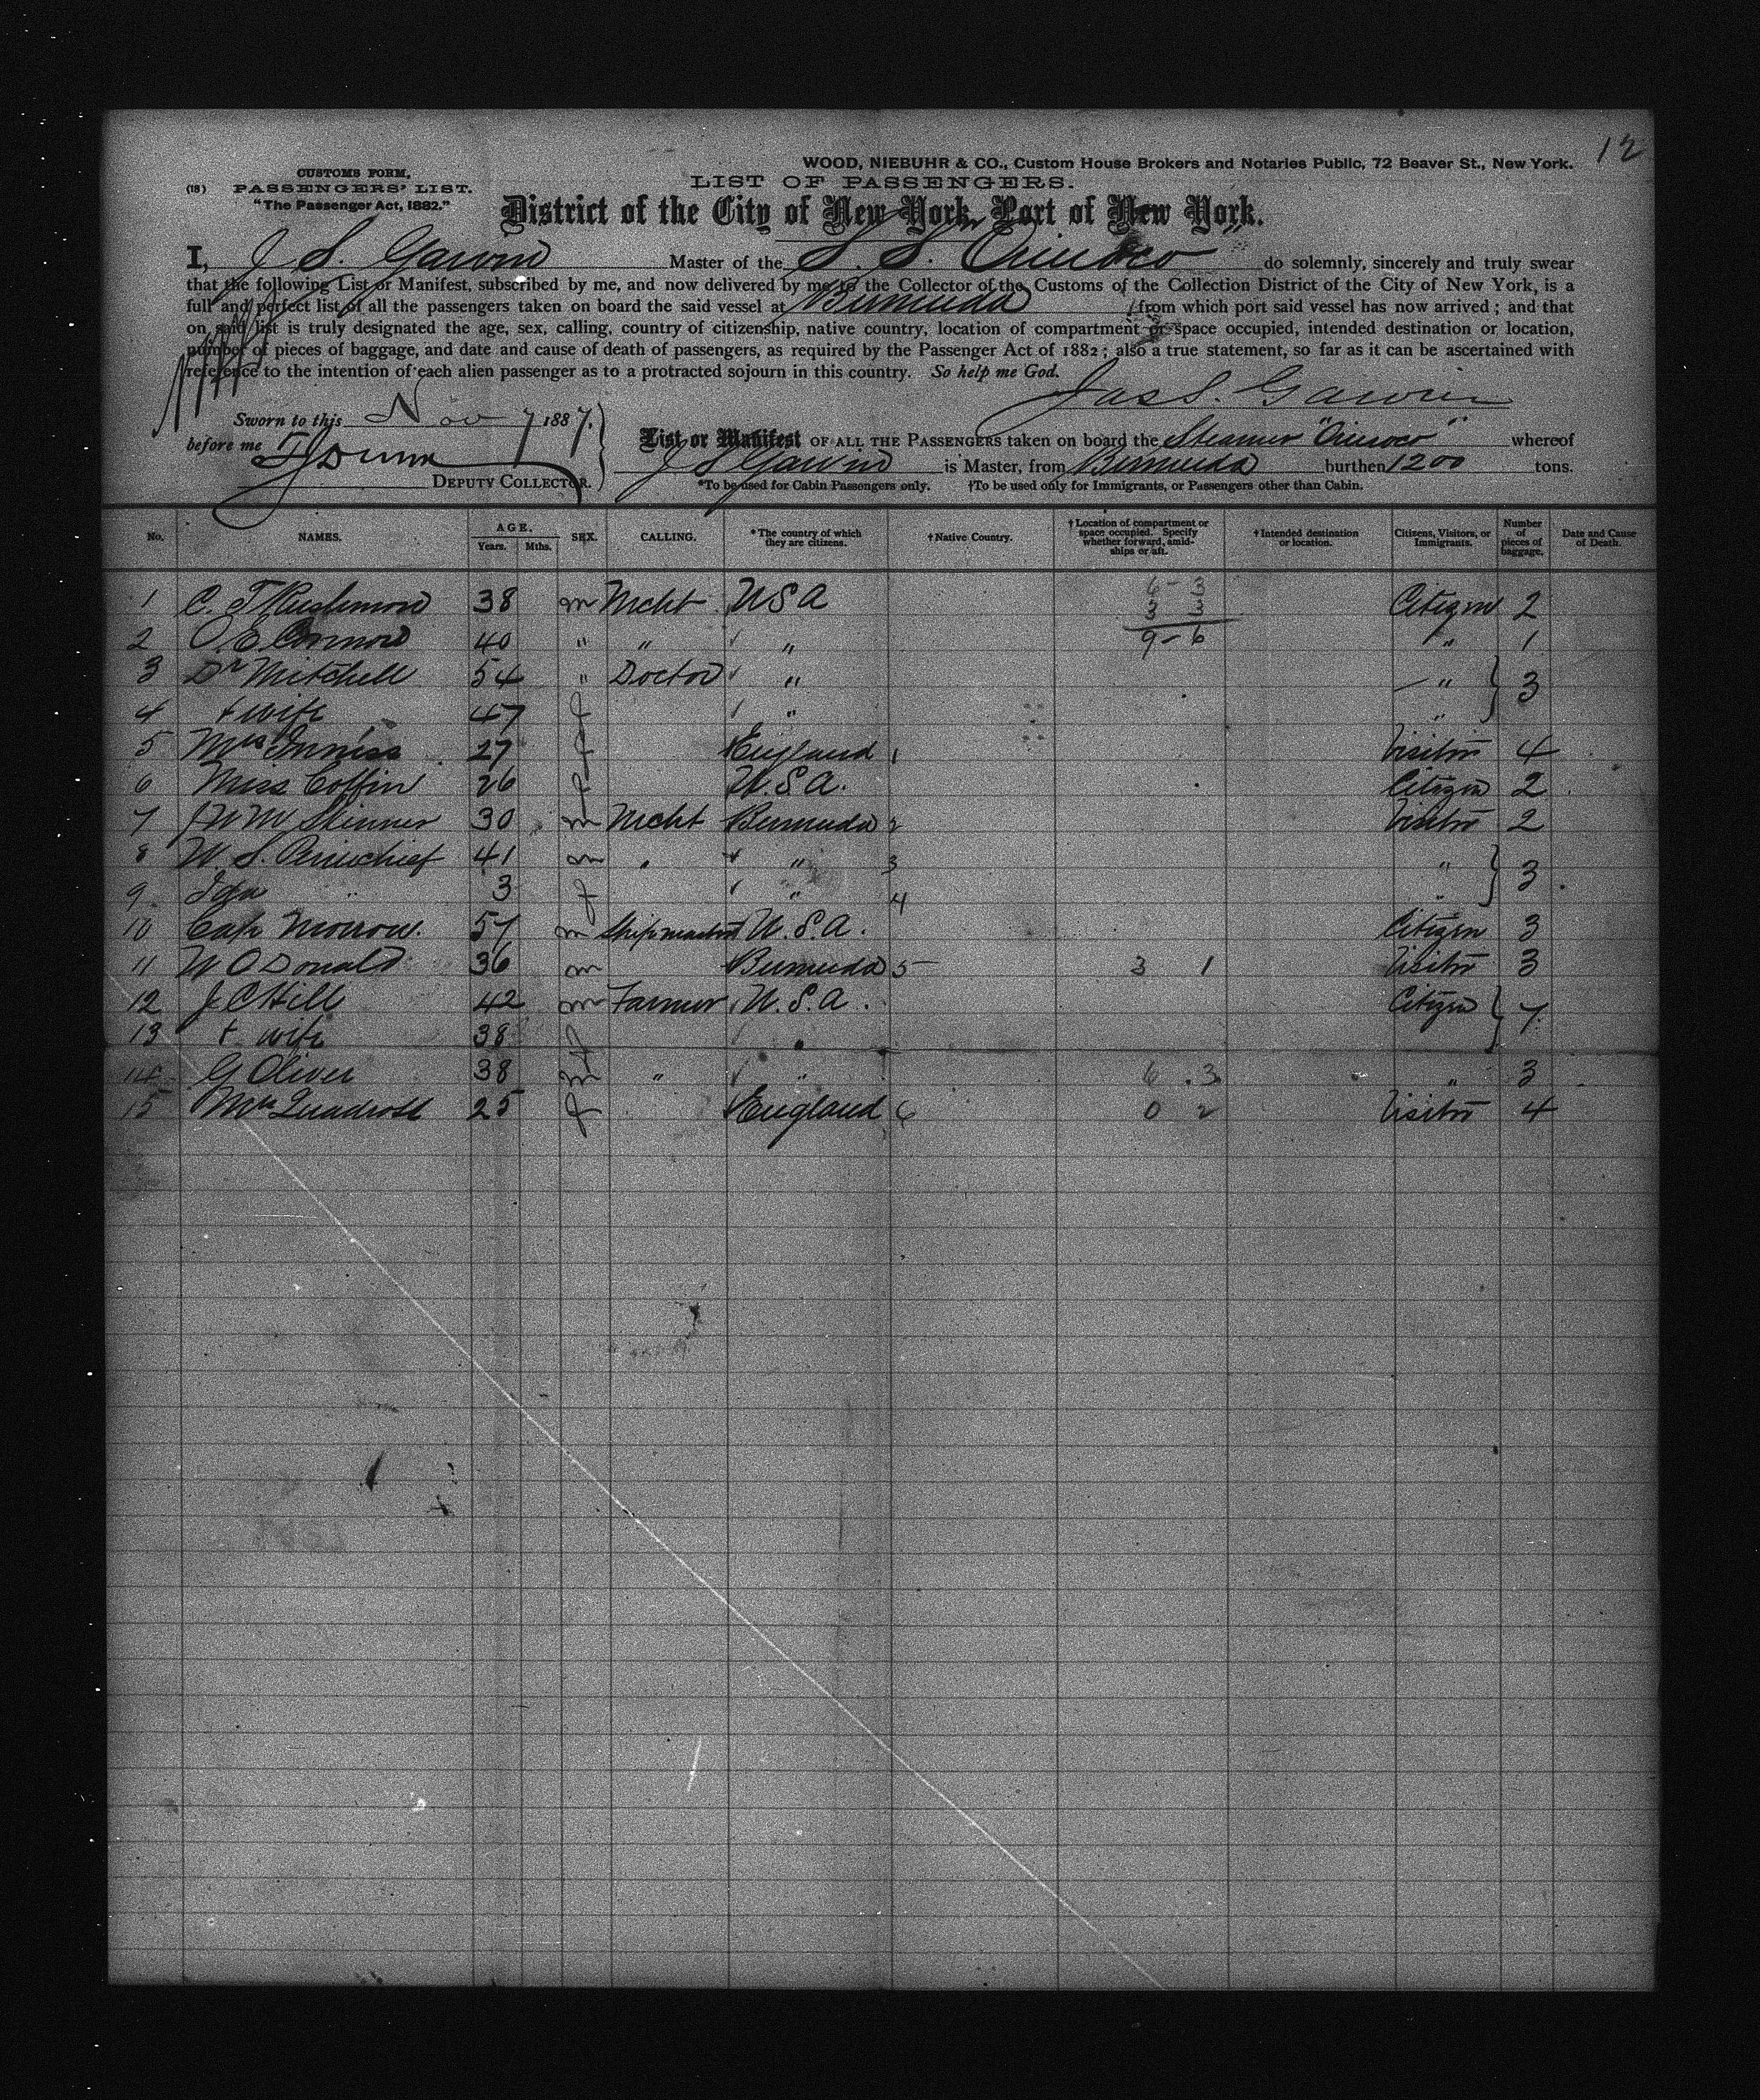 12
WOOD, NIEBUHR & CO., Custom House Brokers and Notaries Public, 72 Beaver St., New York.
CUSTOMS FORM,
(18) PASSENGERS' LIST.
"The Passenger Act, 1882."
LIST OF PASSENGERS.
District of the City of New York, Port of New York.
I, J. S. Garvin Master of the S. S. "Orinoco" do solemnly, sincerely and truly swear
that the following List or Manifest, subscribed by me, and now delivered by me to the Collector of the Customs of the Collection District of the City of New York, is a
full and perfect list of all the passengers taken on board the said vessel at Bermuda from which port said vessel has now arrived; and that
on said list is truly designated the age, sex, calling, country of citizenship, native country, location of compartment or space occupied, intended destination or location,
number of pieces of baggage, and date and cause of death of passengers, as required by the Passenger Act of 1882; also a true statement, so far as it can be ascertained with
reference to the intention of each alien passenger as to a protracted sojourn in this country. So help me God.
Jas S. Garvin
Sworn to this Nov 7 1887.
before me
DEPUTY COLLECTOR.
List or Manifest OF ALL THE PASSENGERS taken on board the Steamer "Orinoco" whereof
J S Garvin is Master, from Bermuda burthen 1200 tons.
*To be used for Cabin Passengers only. †To be used only for Immigrants, or Passengers other than Cabin.
No. NAMES. AGE. Years. Mths. SEX. CALLING. *The country of which they are citizens. †Native Country. †Location of compartment or space occupied. Specify whether forward, amidships or aft. †Intended destination or location. Citizens, Visitors, or Immigrants. Number of pieces of baggage. Date and Cause of Death.
1 C. T. Rushmore 38 m Mcht USA 6-3 3 3 Citizen 2
2 O. E. Connor 40 " " " 9-6 " 1
3 Dr Mitchell 54 " Doctor " " 3
4 + wife 47 f " "
5 Mrs Inniss 27 f England 1 Visitor 4
6 Miss Coffin 26 f U.S.A. Citizen 2
7 J W M Skinner 30 m Mcht Bermuda 2 Visitor 2
8 W. S. Perinchief 41 m " 3 " 3
9 Ida " 3 f " 4 "
10 Capt Morrow. 57 m Shipmaster U.S.A. Citizen 3
11 W O Donald 36 m Bermuda 5 3 1 Visitor 3
12 J C Hill 42 m Farmer U.S.A. Citizen 7
13 + wife 38 f "
14 G Oliver 38 m " " 6.3 " 3
15 Mrs 25 f England 6 0 2 Visitor 4